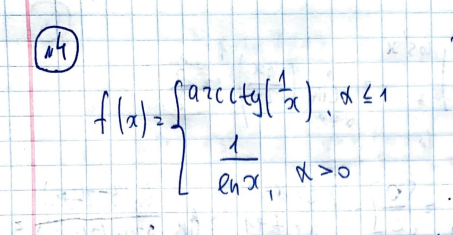 №4
f(x) = { arcctg(1/x), x ≤ 1
1/ln x, x > 0